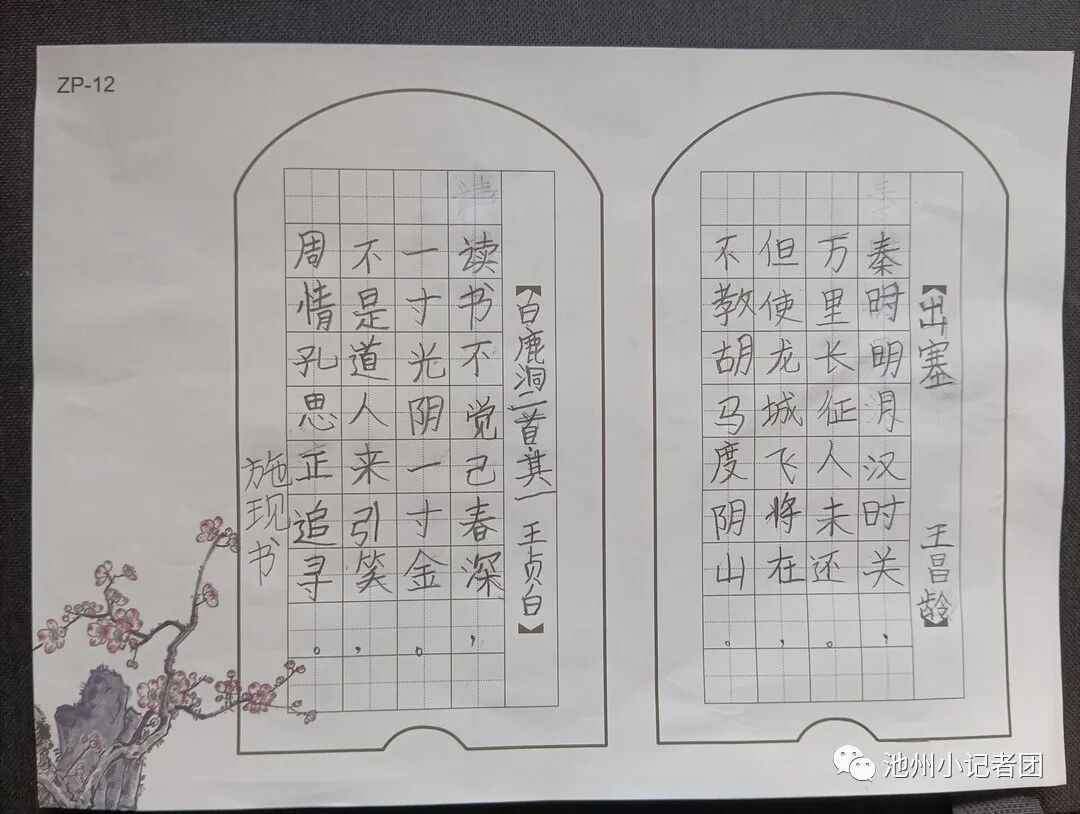 ZP-12
【出塞 王昌龄】
秦时明月汉时关，
万里长征人未还。
但使龙城飞将在，
不教胡马度阴山。
【白鹿洞二首其一 王贞白】
读书不觉己春深，
一寸光阴一寸金。
不是道人来引笑，
周情孔思正追寻。
施现书
池州小记者团